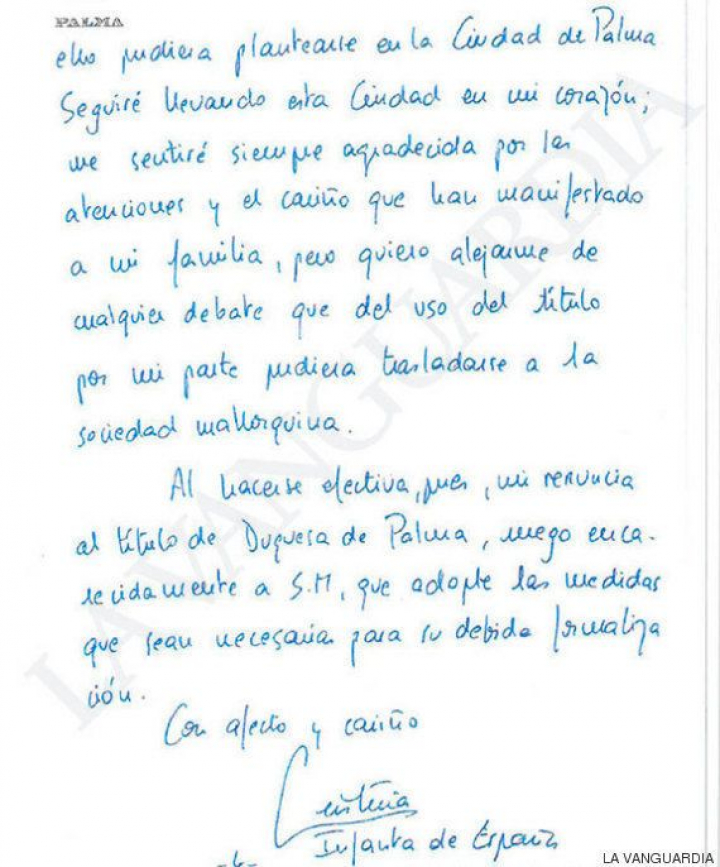 PALMA
ello pudiera plantearse en la Ciudad de Palma
Seguiré llevando esta Ciudad en mi corazón;
me sentiré siempre agradecida por las
atenciones y el cariño que han manifestado
a mi familia, pero quiero alejarme de
cualquier debate que del uso del título
por mi parte pudiera trasladarse a la
sociedad mallorquina.
Al hacerse efectiva, pues, mi renuncia
al título de Duquesa de Palma, ruego enca-
recidamente a S.M, que adopte las medidas
que sean necesarias para su debida formaliza
ción.
Con afecto y cariño
Cristina
Infanta de España
LA VANGUARDIA
LA VANGUARDIA